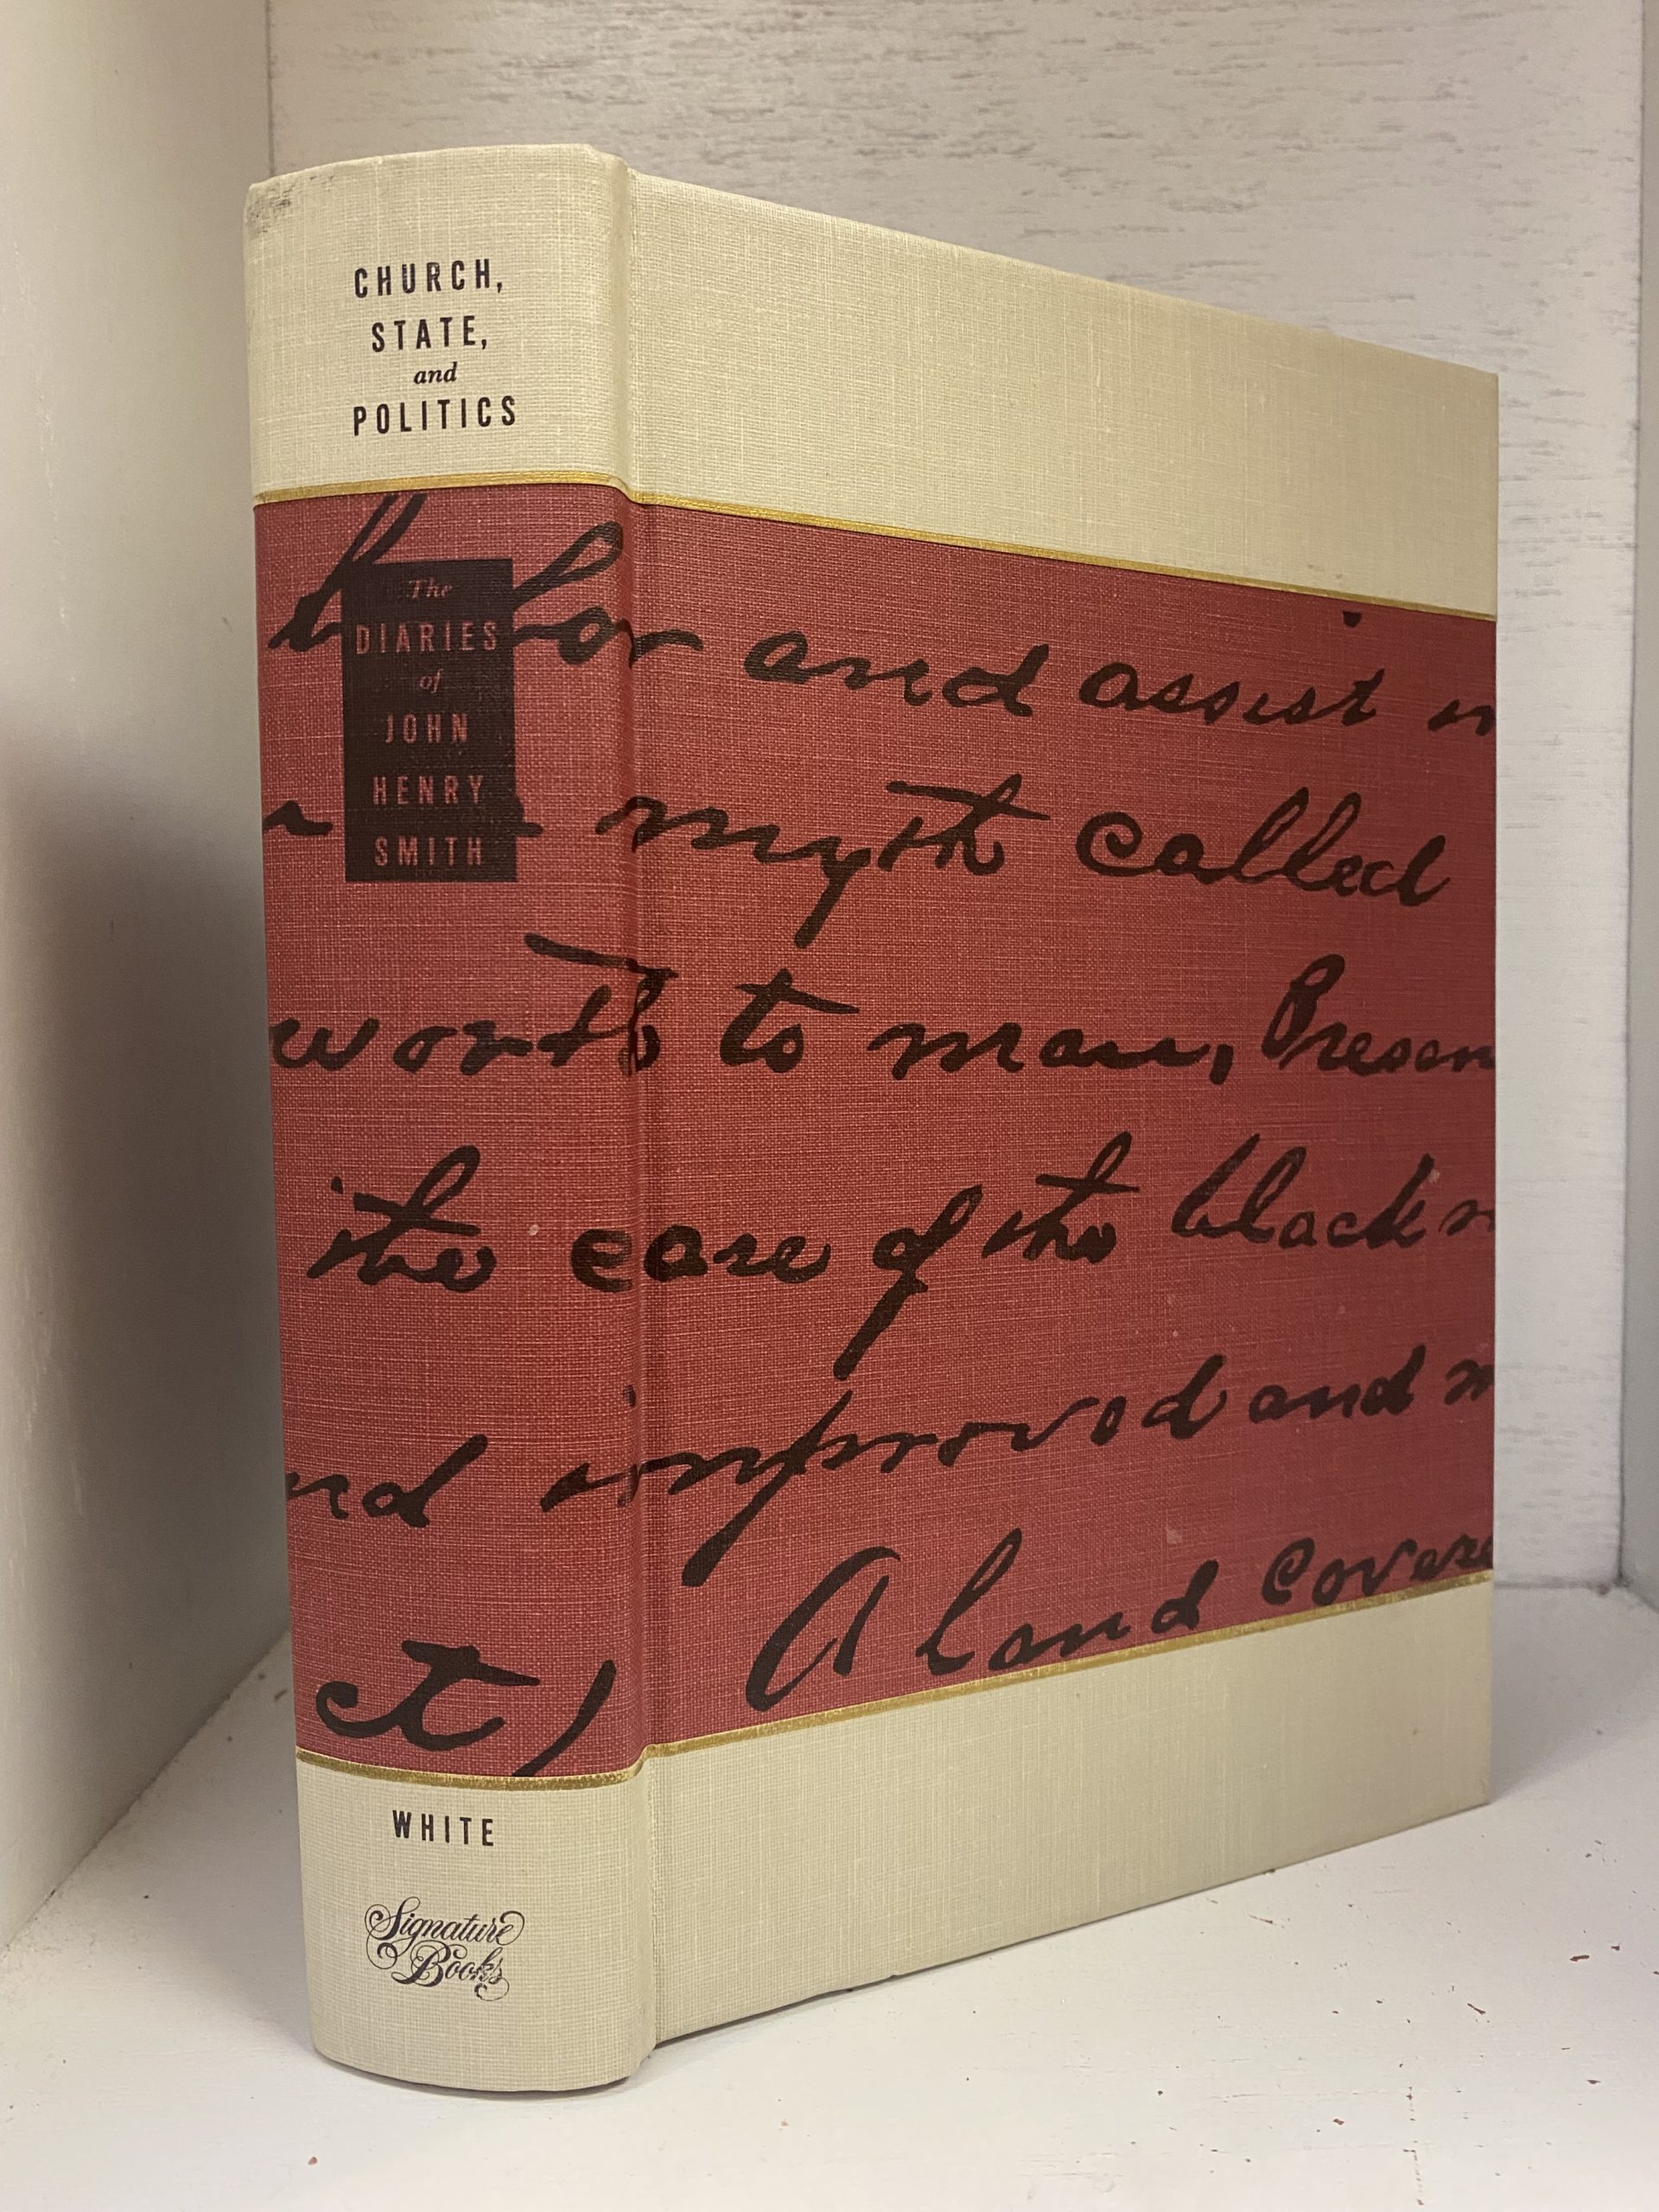 CHURCH,
STATE,
and
POLITICS
The
DIARIES
of
JOHN
HENRY
SMITH
WHITE
Signature
Books
and assist
myth called
worth to man, Presen
the care of the black
nd improved and m
ct) A land covere